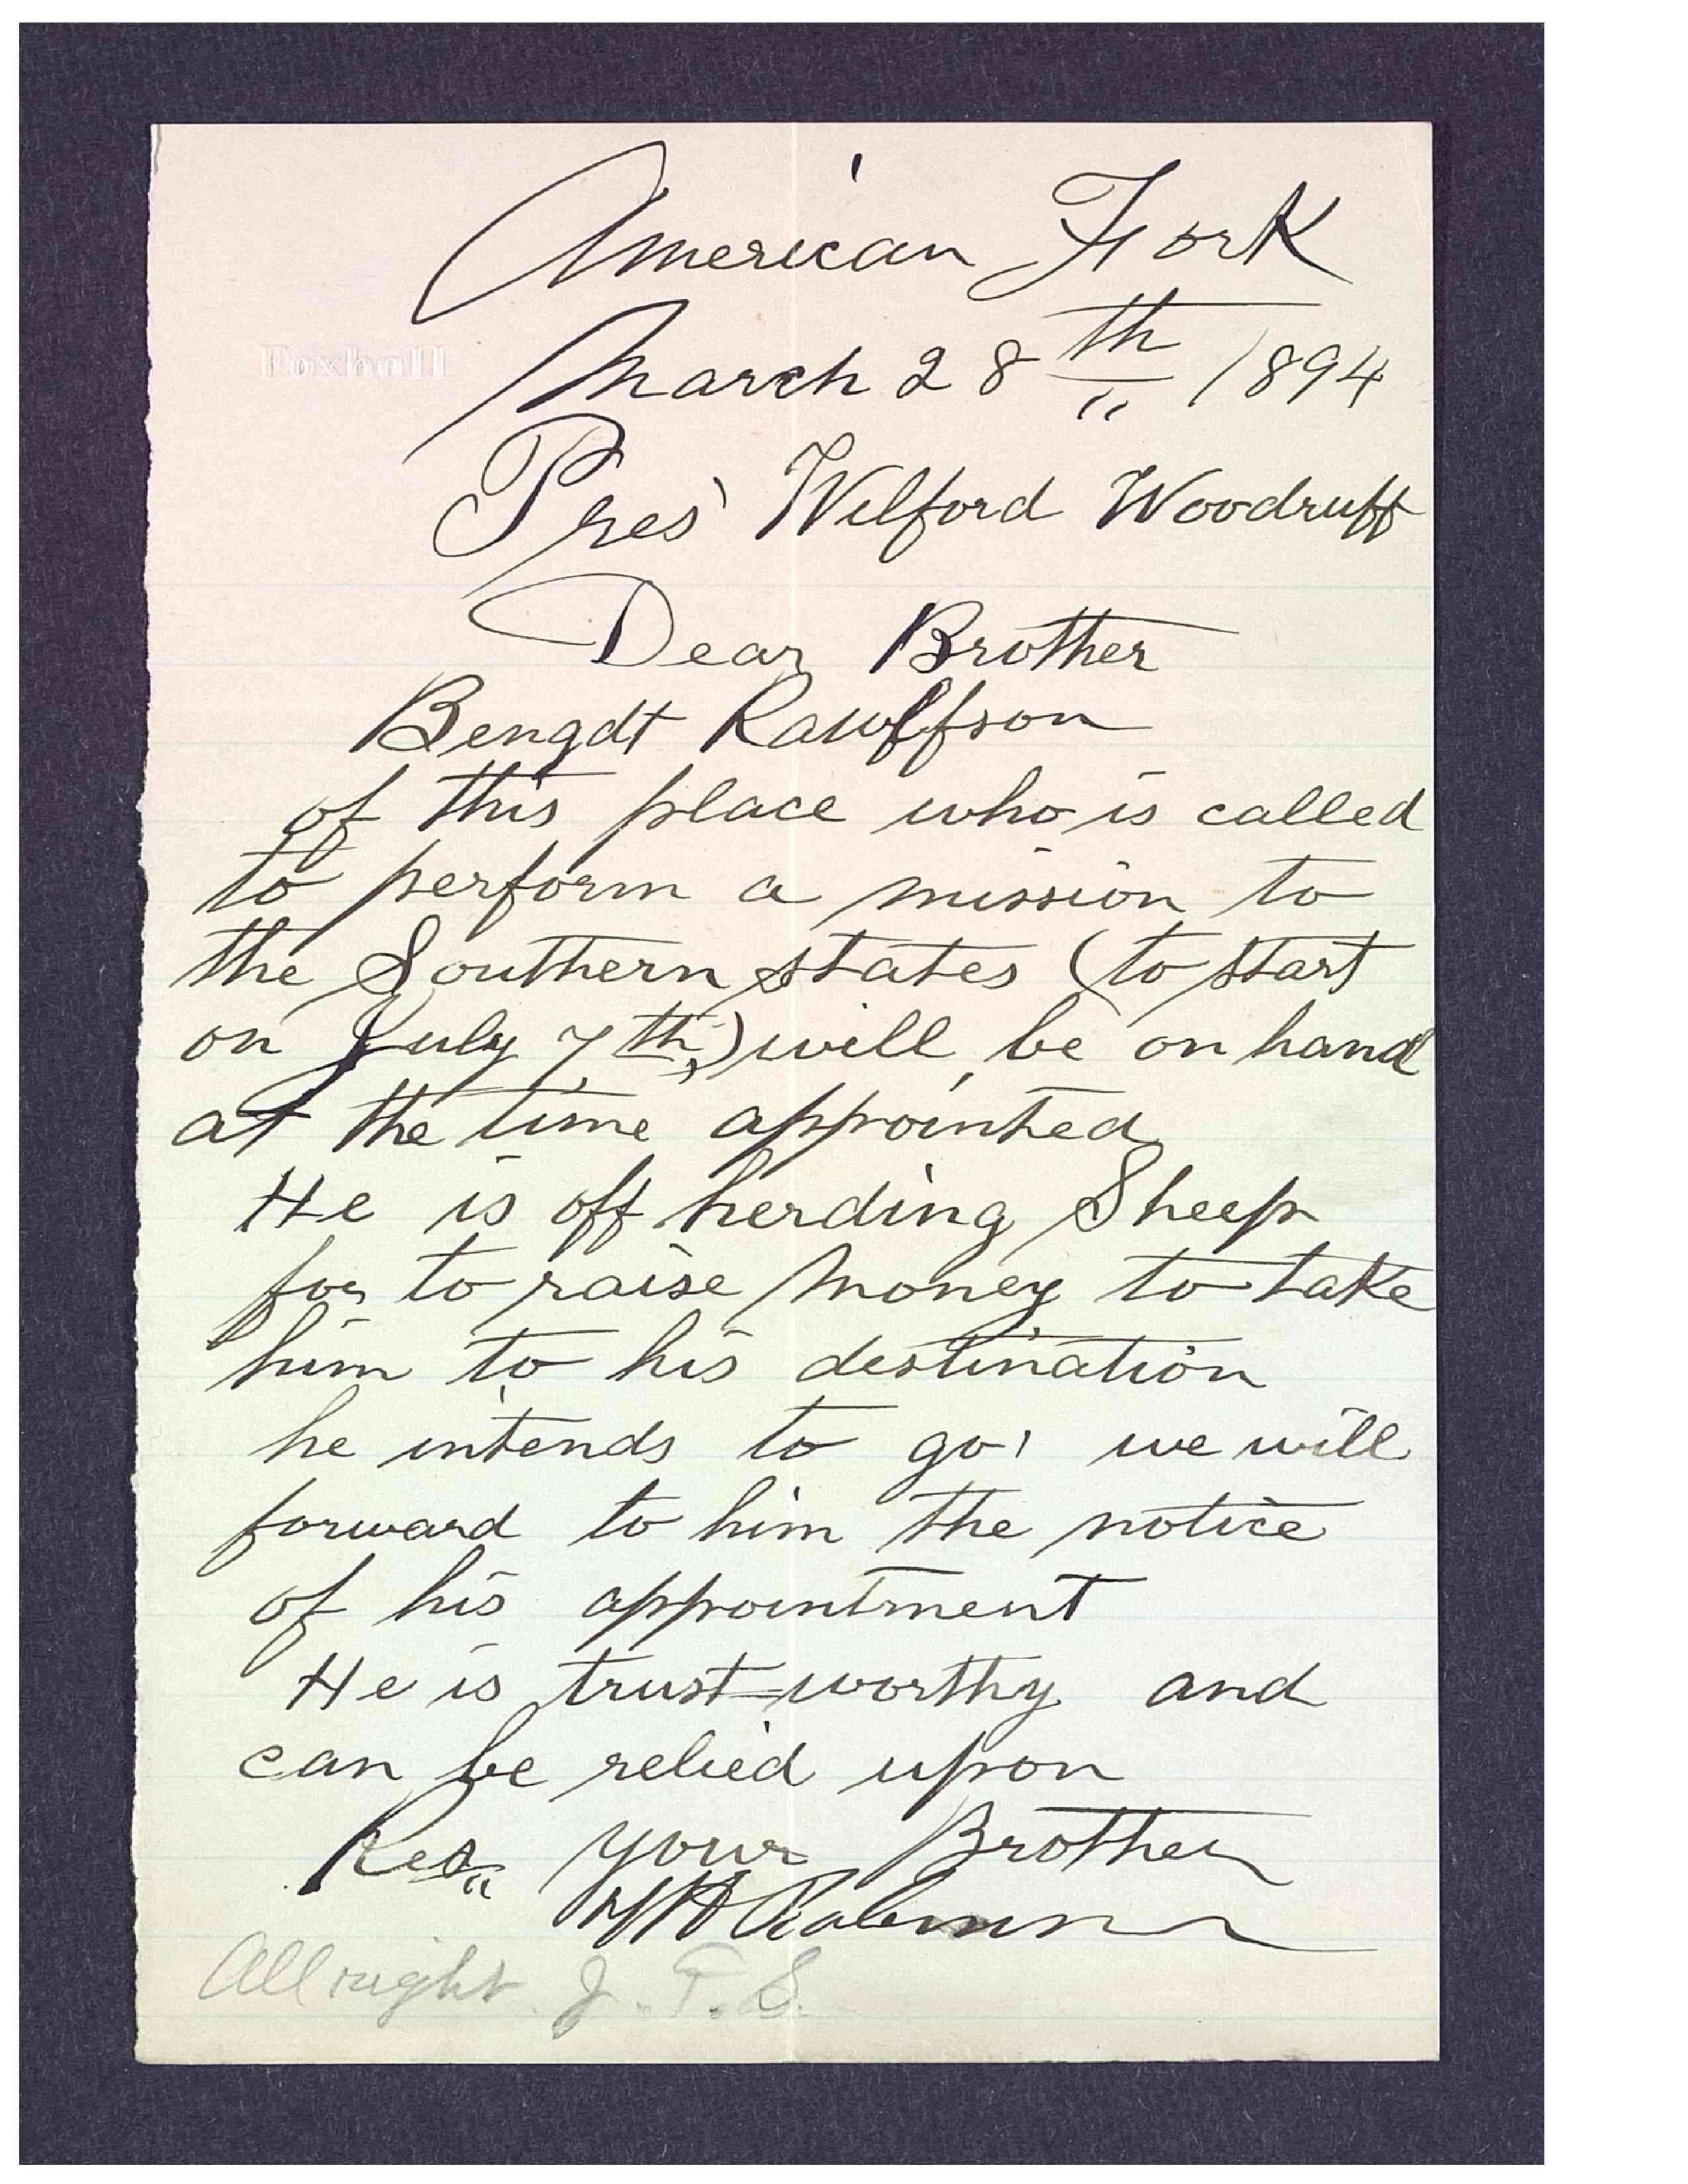 American Fork
Foxhall
March 28th 1894
Pres' Wilford Woodruff
Dear Brother
Bengdt Rawffson
of this place who is called
to perform a mission to
the Southern states (to start
on July 7th,) will be on hand
at the time appointed
He is off herding Sheep
for to raise money to take
him to his destination
he intends to go, we will
forward to him the notice
of his appointment
He is trust=worthy and
can be relied upon
Res" your Brother
All right. J. F. S.